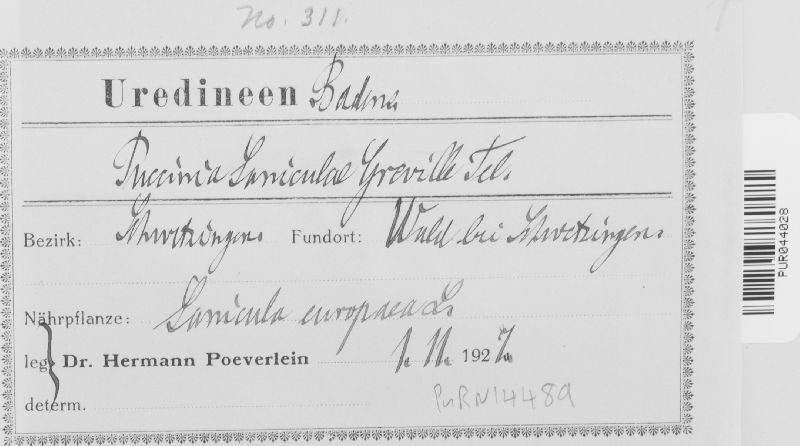 No. 311.
Uredineen Badens
Puccinia Saniculae Greville Tel.
Bezirk: Schwetzingen. Fundort: Wald bei Schwetzingen.
Nährpflanze: Sanicula europaea L.
leg. Dr. Hermann Poeverlein 1. 11. 1927.
determ.
PUR N14489
PUR044028